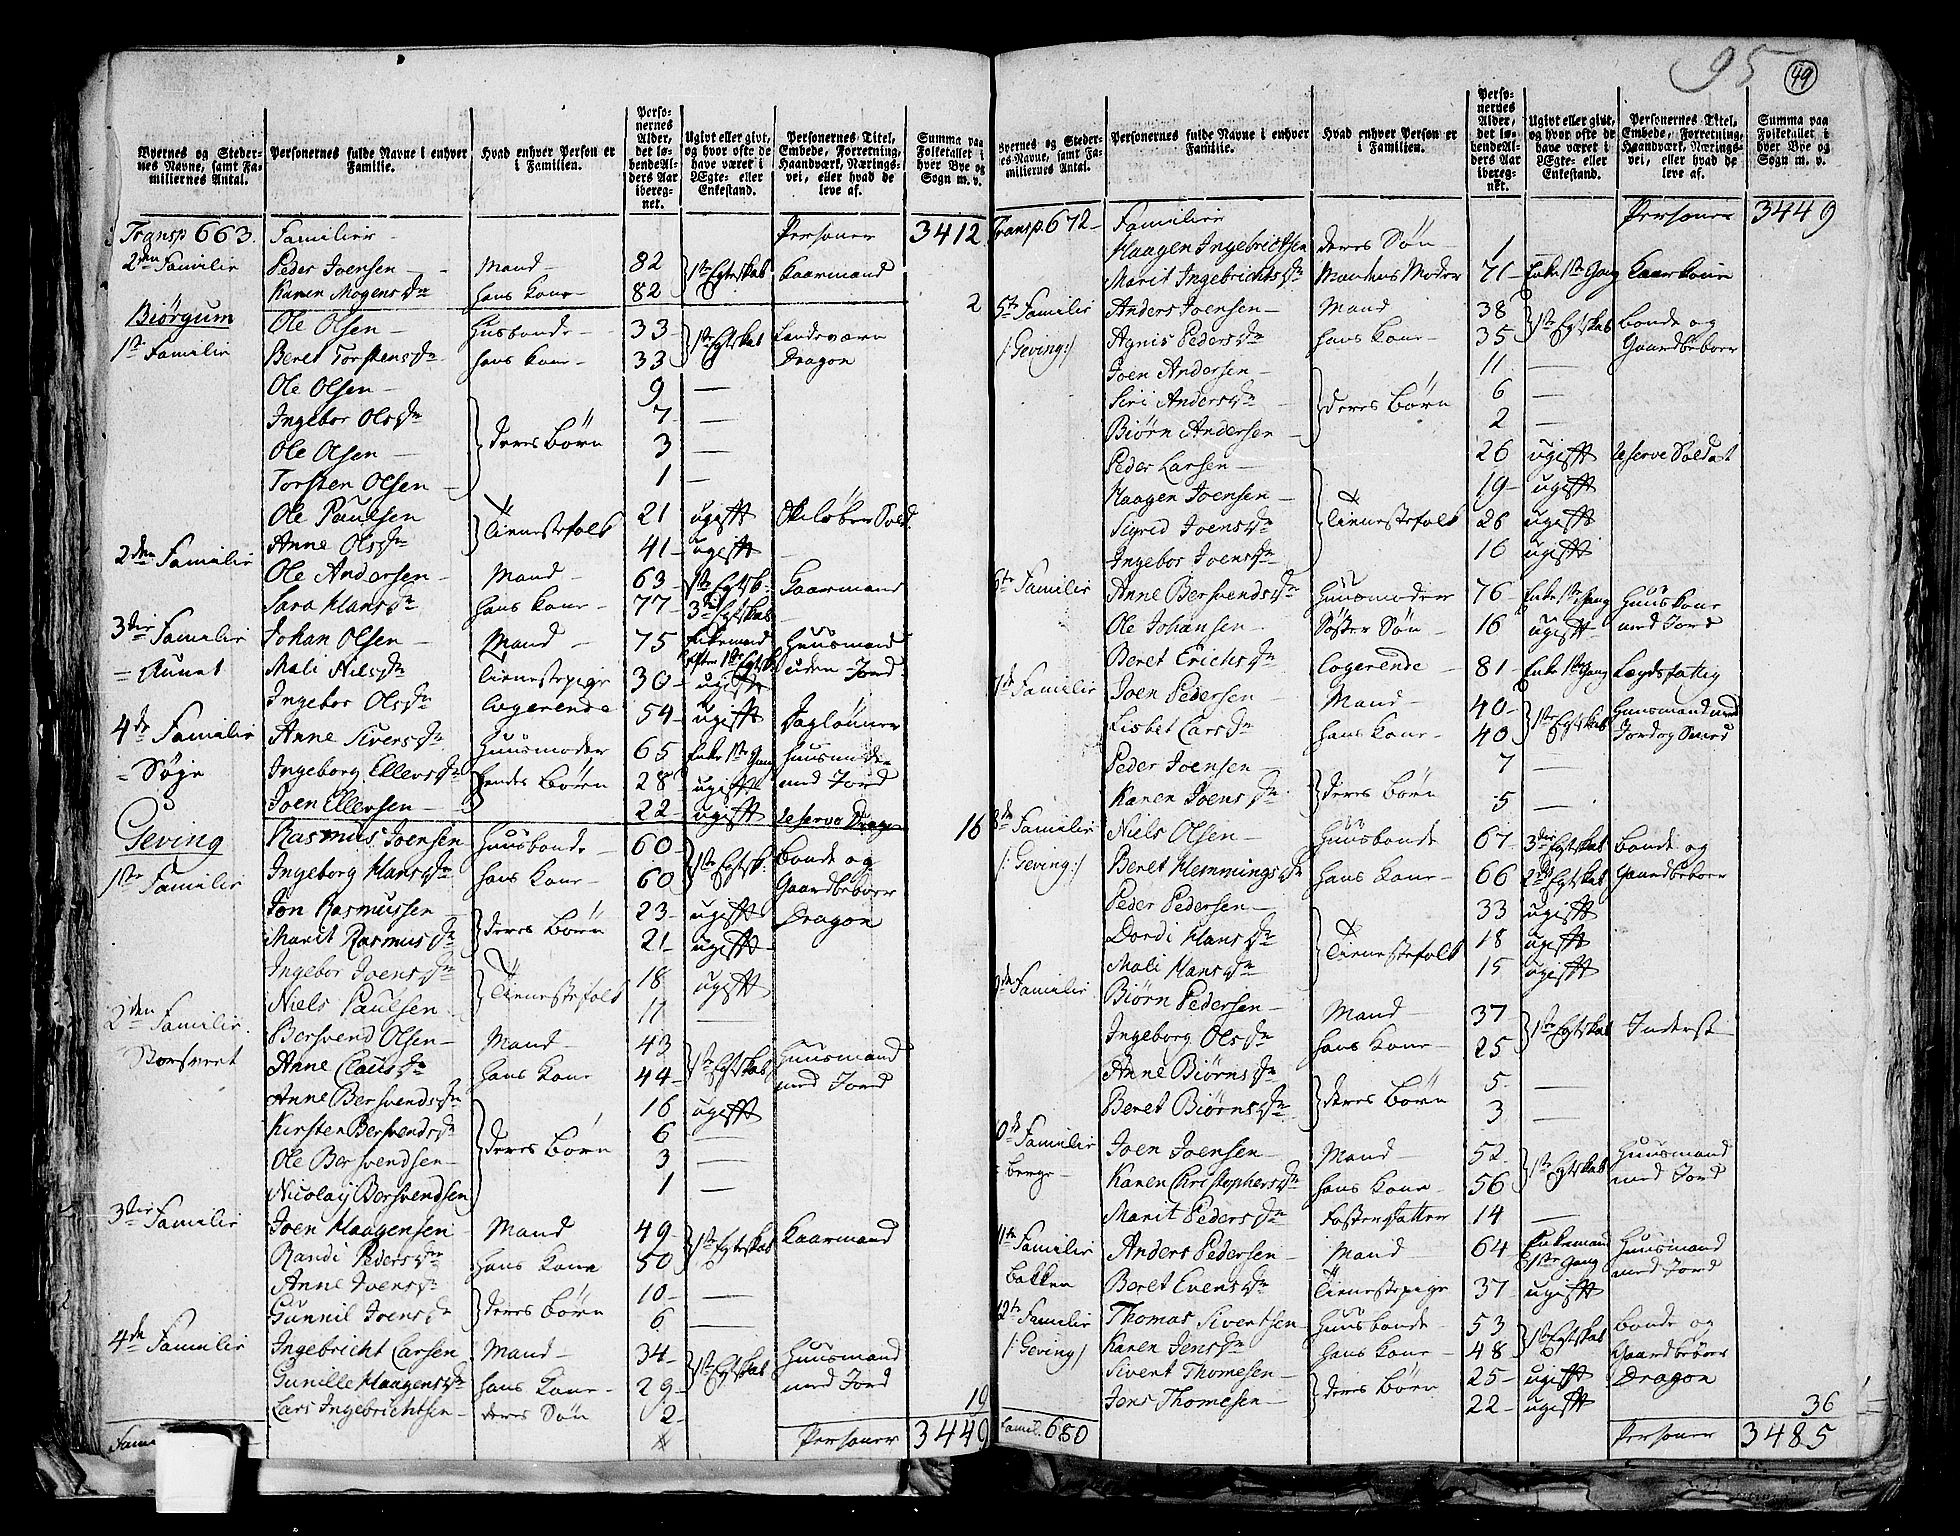 95 49
Byernes og Steder-nes Navne, samt Fa-miliernes Antal. | Personernes fulde Navne i enhver Familie. | Hvad enhver Person er i Familien. | Perso-nernes Alder, det lø-bende Al-ders Aar ibereg-net. | Ugivt eller givt, og hvor ofte de have været i Ægte- eller Enkestand. | Personernes Titel, Embede, Forretning, Haandværk, Nærings-vei, eller hvad de leve af. | Summa paa Folketallet i hver Bye og Sogn m. v.
Transp 663. Familier Personer 3412
2den Familie Peder Joensen Mand 82 1ste Egteskab Kaarmand
Karen Mogensdn hans Kone 82 2
Biörgum Ole Olsen Husbonde 33 1te Egteskab Landeværn
1te Familie Beret Torstensdn hans Kone 33 Dragon
Ole Olsen 9 —
Ingebor Olsdn 7 —
Ole Olsen deres Börn 3 —
Torsten Olsen 1 —
Ole Paulsen Tienestefolk 21 ugifft Skilöber Sold.
Anne Olsdn 41 ugifft —
2den Familie Ole Andersen Mand 63 1te Egtsk: Gaarmand
Sara Hansdn hans Kone 77 3die Egtskab
3die Familie Johan Olsen Mand 75 Enkemand Huusmand
= Aunet Mali Nielsdn Tienestepige 30 efter 1te Egtsk ugifft uden Jord
Ingebor Olsdn Logerende 54 ugifft Daglönner
4de Familie Anne Siversdn Huusmoder 65 Enke 1te Gang Huusmand
= Söge Ingeborg Ellevsdn hendes Börn 28 ugifft med Jord
Joen Ellevsen 22 ugifft reserve Dragon
Geving Rasmus Joensen Huusbonde 60 1te Egtsk. Bonde og 16
1te Familie Ingeborg Hansdn hans Kone 60 Gaardbeboer
Jon Rasmussen deres Börn 23 ugifft Dragon
Marit Rasmusdn 21 ugifft
Ingebor Joensdn Tienestefolk 18 ugifft
Niels Paulsen 17 —
2den Familie Bersvend Olsen Mand 43 1te Egtskab Huusmand
Anne Clausdn hans Kone 44 med Jord
Anne Bersvendsdn 16 ugifft
Kirsten Bersvendsdn deres Börn 6 —
Ole Bersvendsen 3 —
Nicolaÿ Bersvendsen 1 —
3die Familie Joen Haagensen Mand 49 1te Egteskab Kaarmand
Randi Pedersdn hans Kone 50
Anne Joensdn deres Börn 10 —
Gunnil Joensdn 6 —
4de Familie Ingebricht Larsen Mand 34 1te Egtskab Huusmand
Gunille Haagensdn hans Kone 29 med Jord
Lars Ingebrichtsen deres Sön 2 19
Personer 3449
Byernes og Steder-nes Navne, samt Fa-miliernes Antal. | Personernes fulde Navne i enhver Familie. | Hvad enhver Person er i Familien. | Perso-nernes Alder, det lø-bende Al-ders Aar ibereg-net. | Ugivt eller givt, og hvor ofte de have været i Ægte- eller Enkestand. | Personernes Titel, Embede, Forretning, Haandværk, Nærings-vei, eller hvad de leve af. | Summa paa Folketallet i hver Bye og Sogn m. v.
Transp. 672 Familier Personer 3449
Haagen Ingebrichtsen deres Sön 1
Marit Ingebrichtsdn Mandens Moder 71 Enke 1te Gang Kaarkone
5te Familie Anders Joensen Mand 38 1te Egtskab Bonde og
/:Geving:/ Agnis Pedersdn hans Kone 35 Gaardbeboer
Joen Andersen 11 —
Siri Andersdn deres Börn 6 —
Biörn Andersen 2 —
Peder Larsen 26 ugifft reserve Soldat
Haagen Joensen 19 ugifft
Sigrid Joensdn Tienestefolk 26 ugifft
Ingebor Joensdn 16 ugifft
6te Familie Anne Bersvendsdn Huusmoder 76 Enke 1te Gang Huuskone
Ole Johansen Söster Sön 16 ugifft med Jord
Beret Erichsdn Logerende 81 Enke 1te Gang Lægdsfattig
7de Familie Joen Pedersen Mand 40 1te Egtskab Huusmand med
Lisbet Larsdn hans Kone 40 Jord og Smed
Peder Joensen deres Börn 7 —
Karen Joensdn 5 —
8de Familie Niels Olsen Huusbonde 67 3die Egtskab Bonde og
/:Geving:/ Beret Hemmingsdn hans Kone 66 2de Egtskab Gaardbeboer
Peder Pedersen 33 ugifft
Dordi Hansdn Tienestefolk 18 ugifft
Mali Hansdn 15 ugifft
9de Familie Biörn Pedersen Mand 37 1te Egtskab Inderst
Ingeborg Olsdn hans Kone 25
Anne Biörnsdn deres Börn 5 —
Beret Biörnsdn 3 —
0de Familie Joen Joensen Mand 52 1te Egtskab Huusmand
Berge Karen Christophersdn hans Kone 56 med Jord
Marit Pedersdn Fosterdatter 14 —
11te Familie Anders Pedersen Mand 64 Enkemand 1te Gang Huusmand
Bakken Beret Evensdn Tienestepige 37 ugifft med Jord
12te Familie Thomas Sivertsen Huusbonde 53 1te Egtskab Bonde og
/:Geving/ Karen Jensdn hans Kone 48 Gaardbeboer
Sivert Thomesen deres Börn 25 ugifft Dragon
Jens Thomesen 22 ugifft 36
Famil. 680 Personer 3485